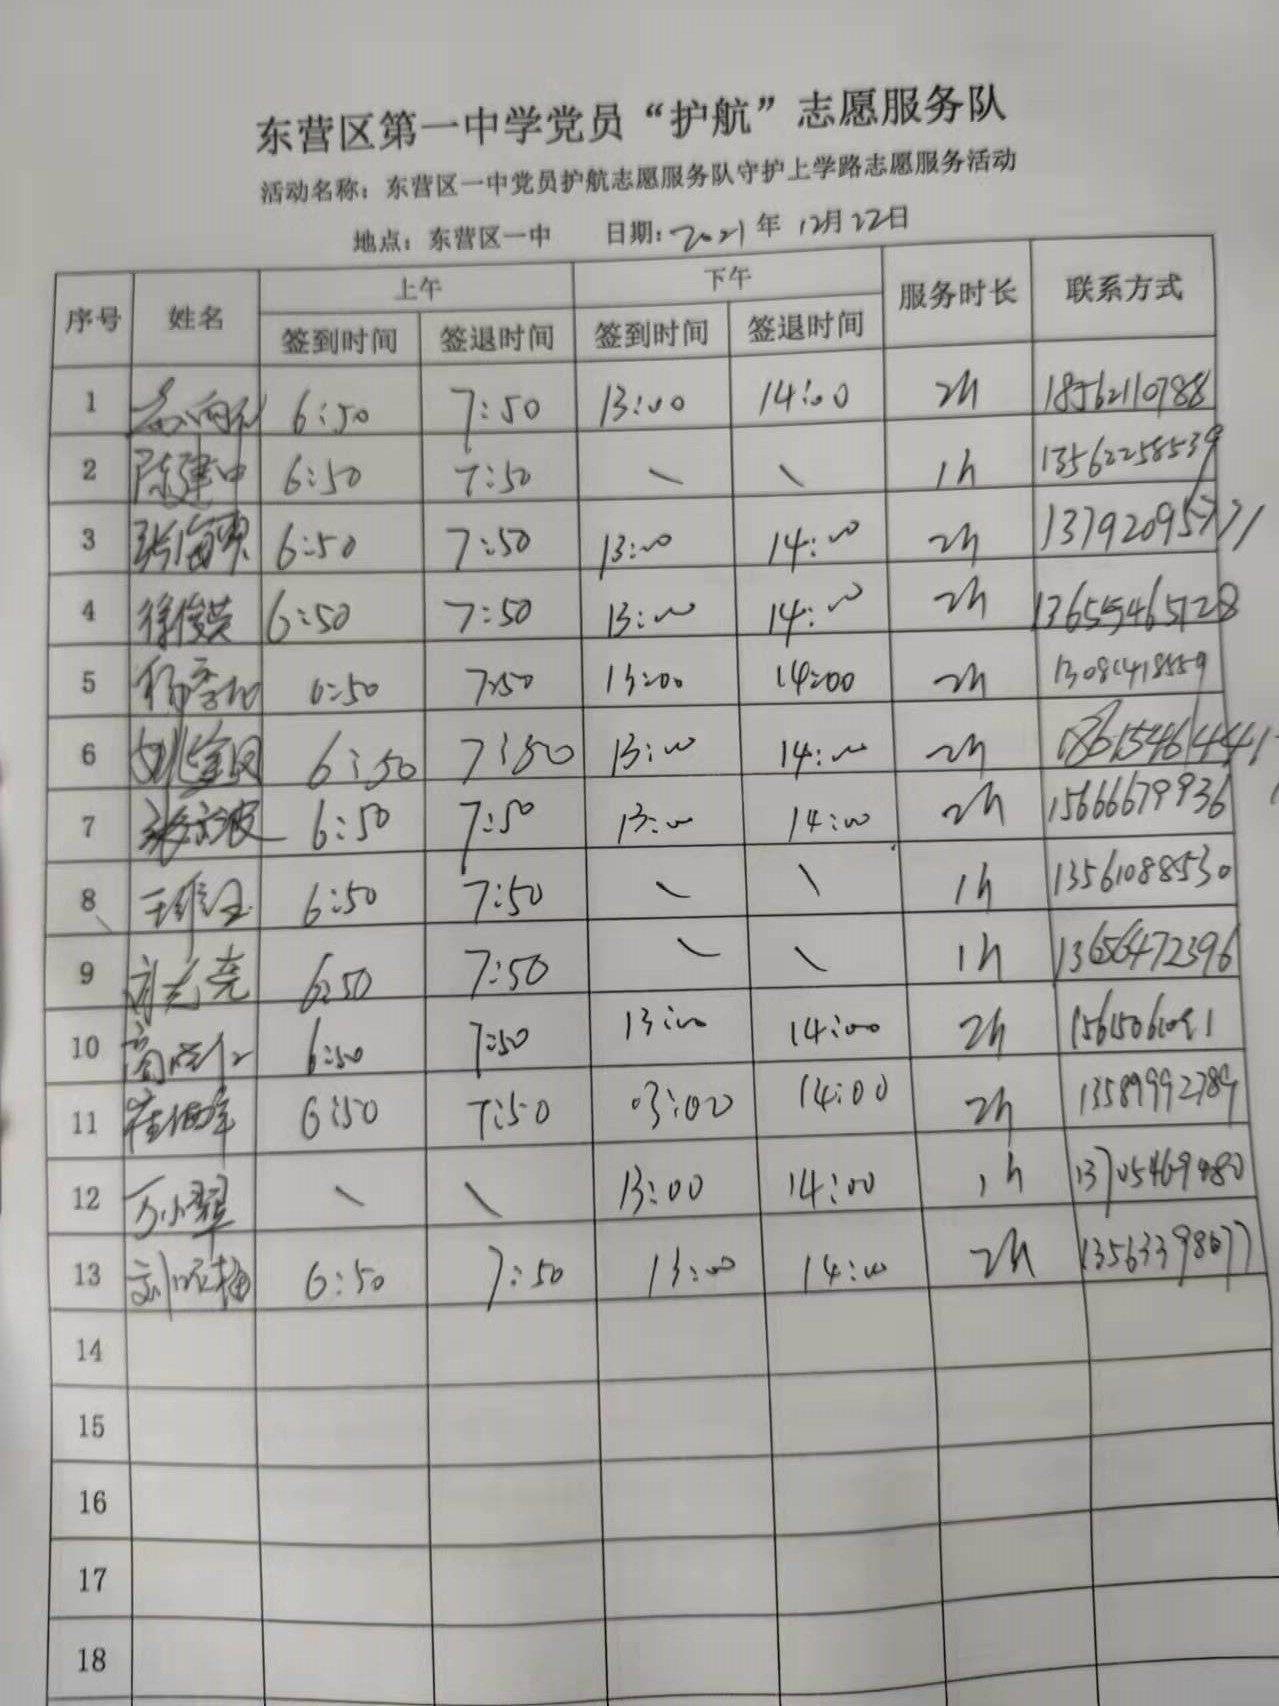 东营区第一中学党员“护航”志愿服务队
活动名称：东营区一中党员护航志愿服务队守护上学路志愿服务活动
地点：东营区一中 日期：2021年12月22日
序号 姓名 上午 下午 服务时长 联系方式
签到时间 签退时间 签到时间 签退时间
1 6:50 7:50 13:00 14:00 2h 18562110788
2 陈建中 6:50 7:50 \ \ 1h 13562258539
3 6:50 7:50 13:00 14:00 2h
4 徐俊英 6:50 7:50 13:00 14:00 2h
5 6:50 7:50 13:00 14:00 2h
6 6:50 7:50 13:00 14:00 2h
7 6:50 7:50 13:00 14:00 2h 15666679936
8 6:50 7:50 \ \ 1h 13561088530
9 6:50 7:50 \ \ 1h 13656472396
10 6:50 7:50 13:00 14:00 2h
11 6:50 7:50 13:00 14:00 2h 13589992789
12 万小翠 \ \ 13:00 14:00 1h
13 6:50 7:50 13:00 14:00 2h
14
15
16
17
18